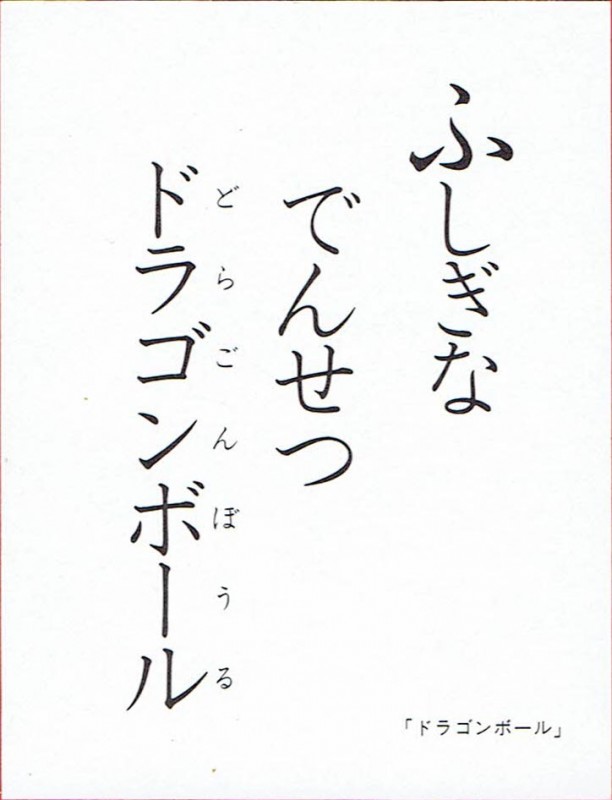 ふしぎな
でんせつ
ドラゴンボール
どらごんぼうる
「ドラゴンボール」